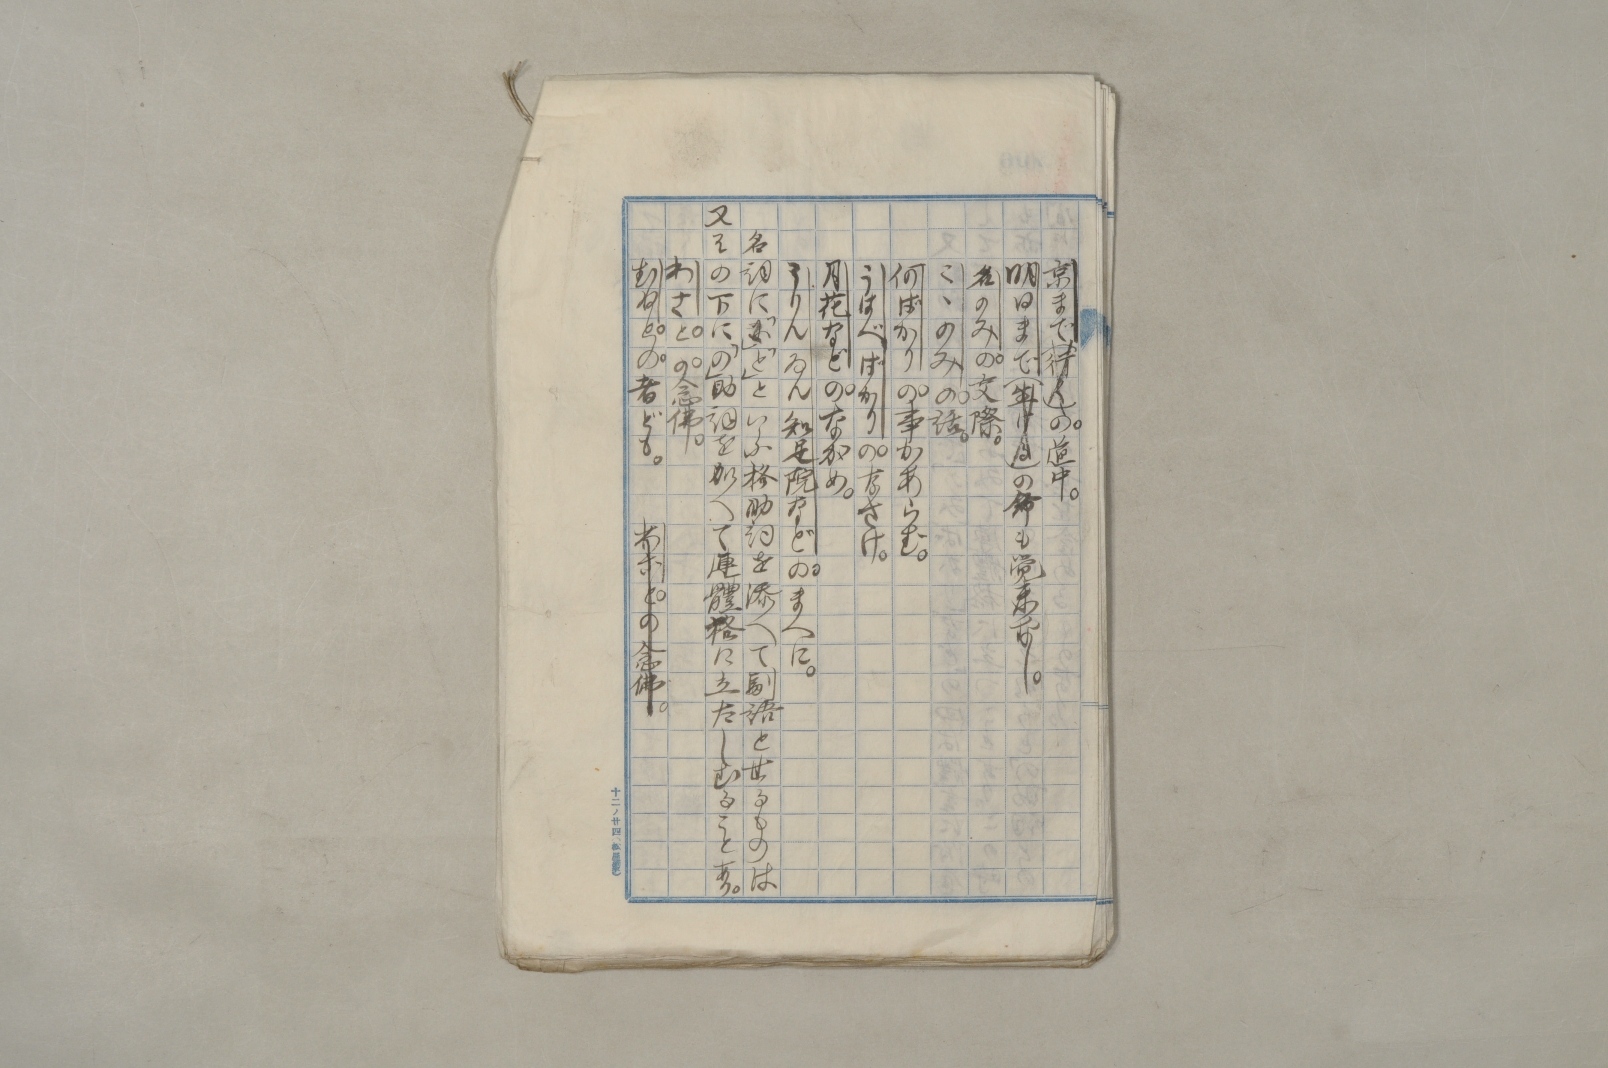 京までの道中。
明日までの命も覚束なし。
名のみの交際。
こゝのみの話。
何ばかりの事かあらむ。
うはべばかりのなさけ。
月花などのながめ。
うりんゐん知足院などのまへに。
名詞に「と」といふ格助詞を添へて副語とせるものは
又その下に「の」助詞を加へて連體格に立たしむることあり。
わざとの念佛。
むねとの者ども。
との念佛。